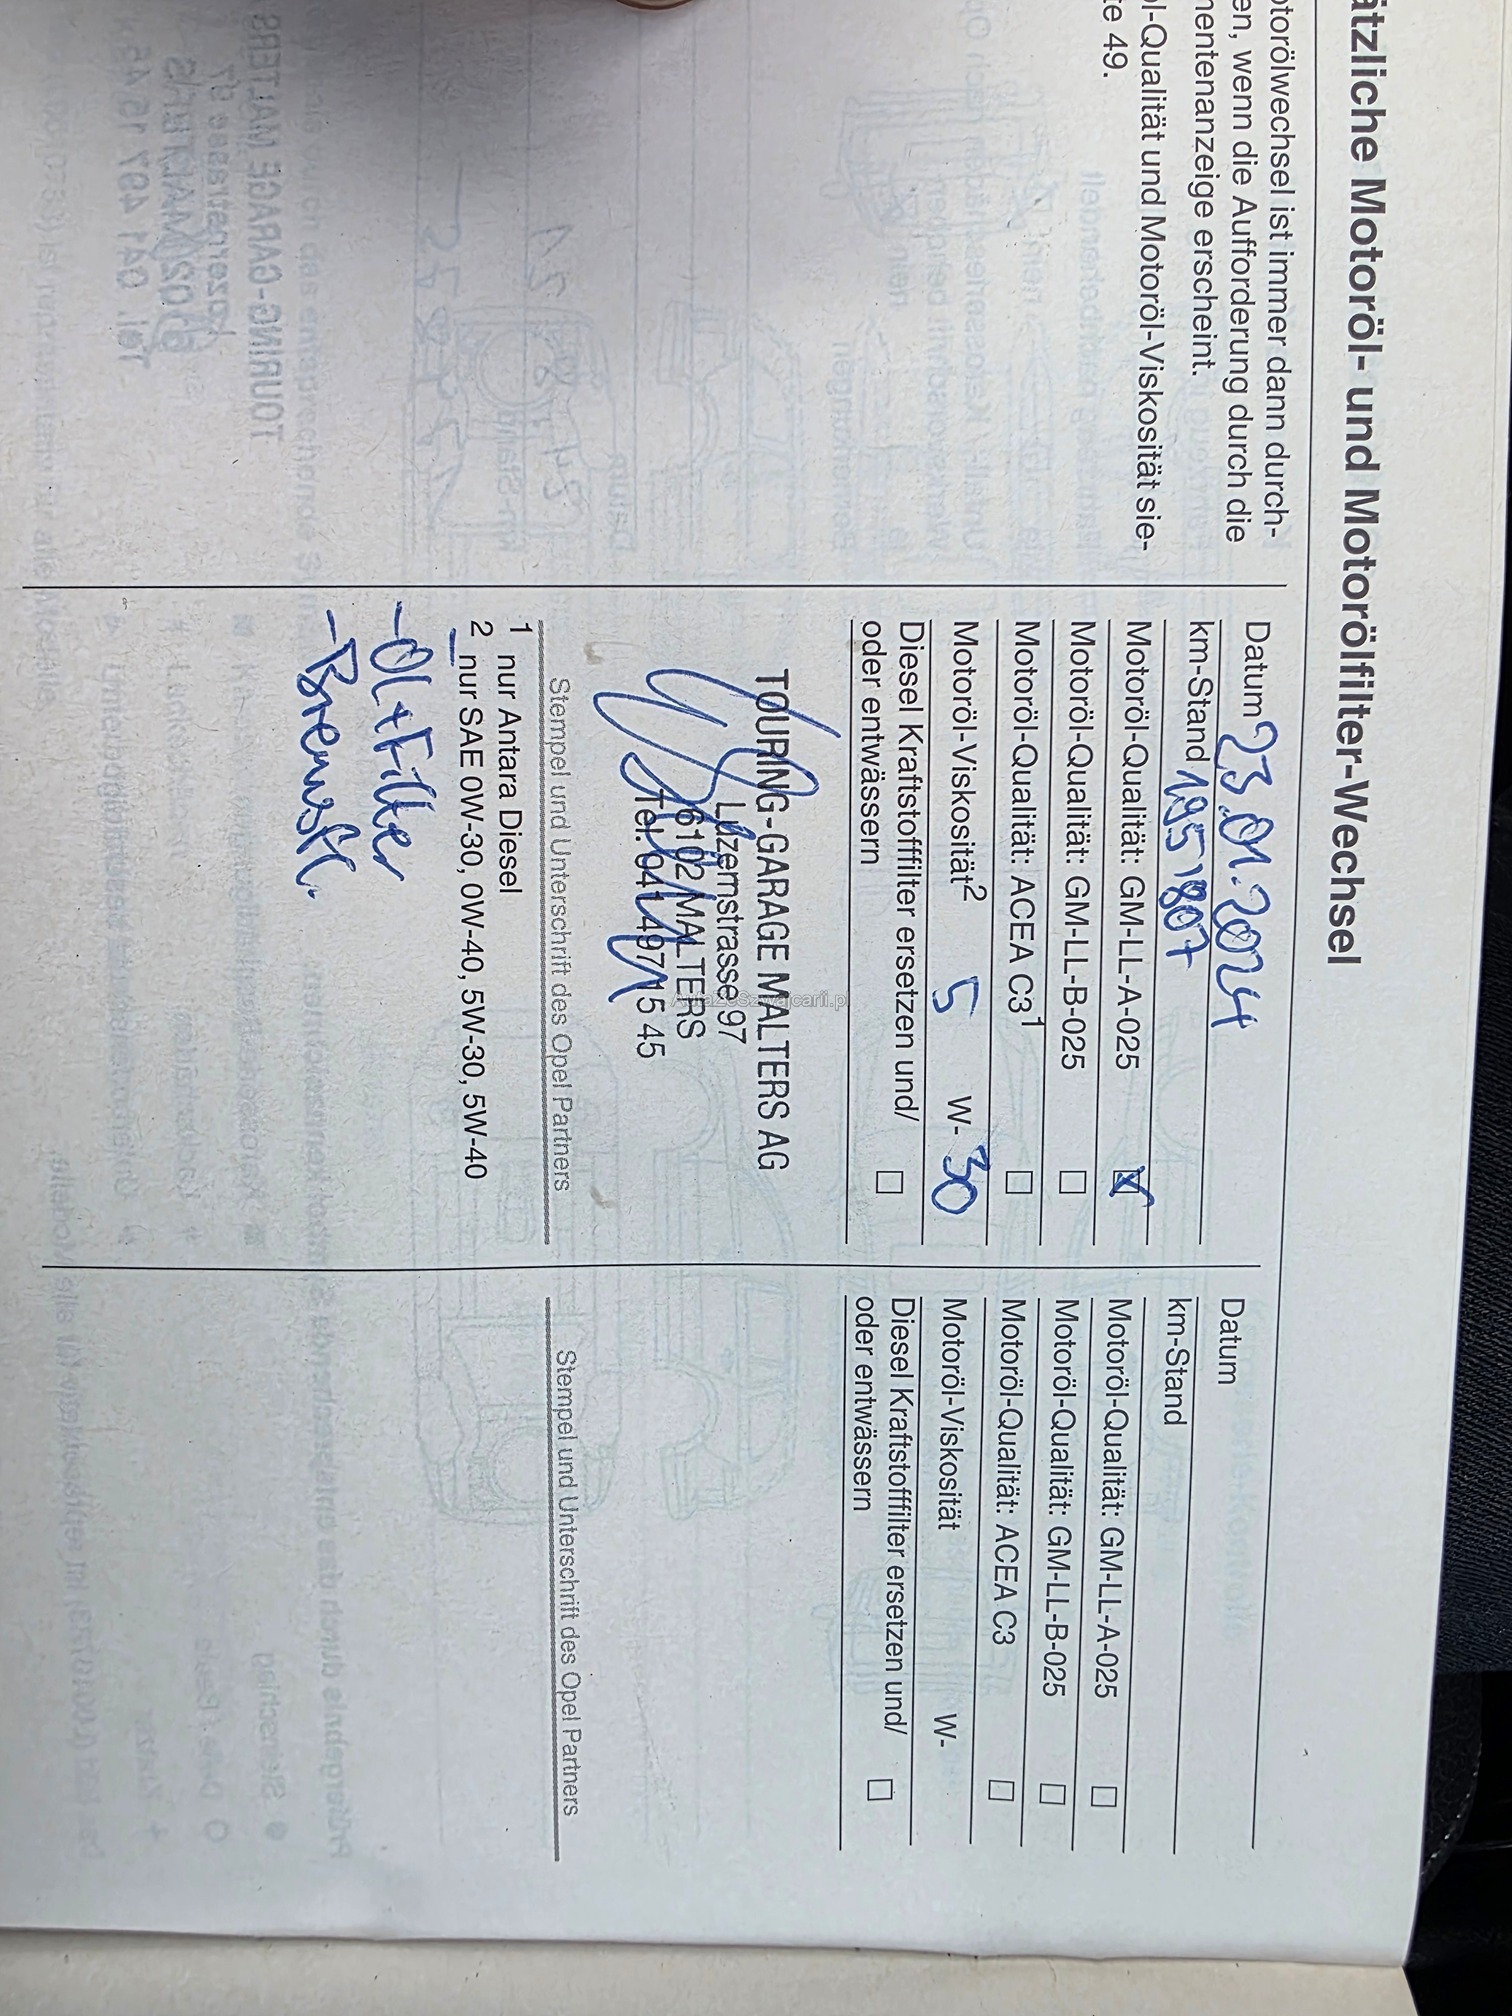 ätzliche Motoröl- und Motorölfilter-Wechsel
otorölwechsel ist immer dann durch-
en, wenn die Aufforderung durch die
mentenanzeige erscheint.
öl-Qualität und Motoröl-Viskosität sie-
te 49.
Datum 23.01.2024
km-Stand 195'807
Motoröl-Qualität: GM-LL-A-025
Motoröl-Qualität: GM-LL-B-025
Motoröl-Qualität: ACEA C3¹
Motoröl-Viskosität² 5 W-30
Diesel Kraftstofffilter ersetzen und/
oder entwässern
TOURING-GARAGE MALTERS AG
Luzernstrasse 97
6102 MALTERS
Tel. 041 497 15 45
Stempel und Unterschrift des Opel Partners
1 nur Antara Diesel
2 nur SAE 0W-30, 0W-40, 5W-30, 5W-40
- Öl + Filter
- Bremsfl.
Datum
km-Stand
Motoröl-Qualität: GM-LL-A-025
Motoröl-Qualität: GM-LL-B-025
Motoröl-Qualität: ACEA C3
Motoröl-Viskosität W-
Diesel Kraftstofffilter ersetzen und/
oder entwässern
Stempel und Unterschrift des Opel Partners
AutaZeSzwajcarii.pl